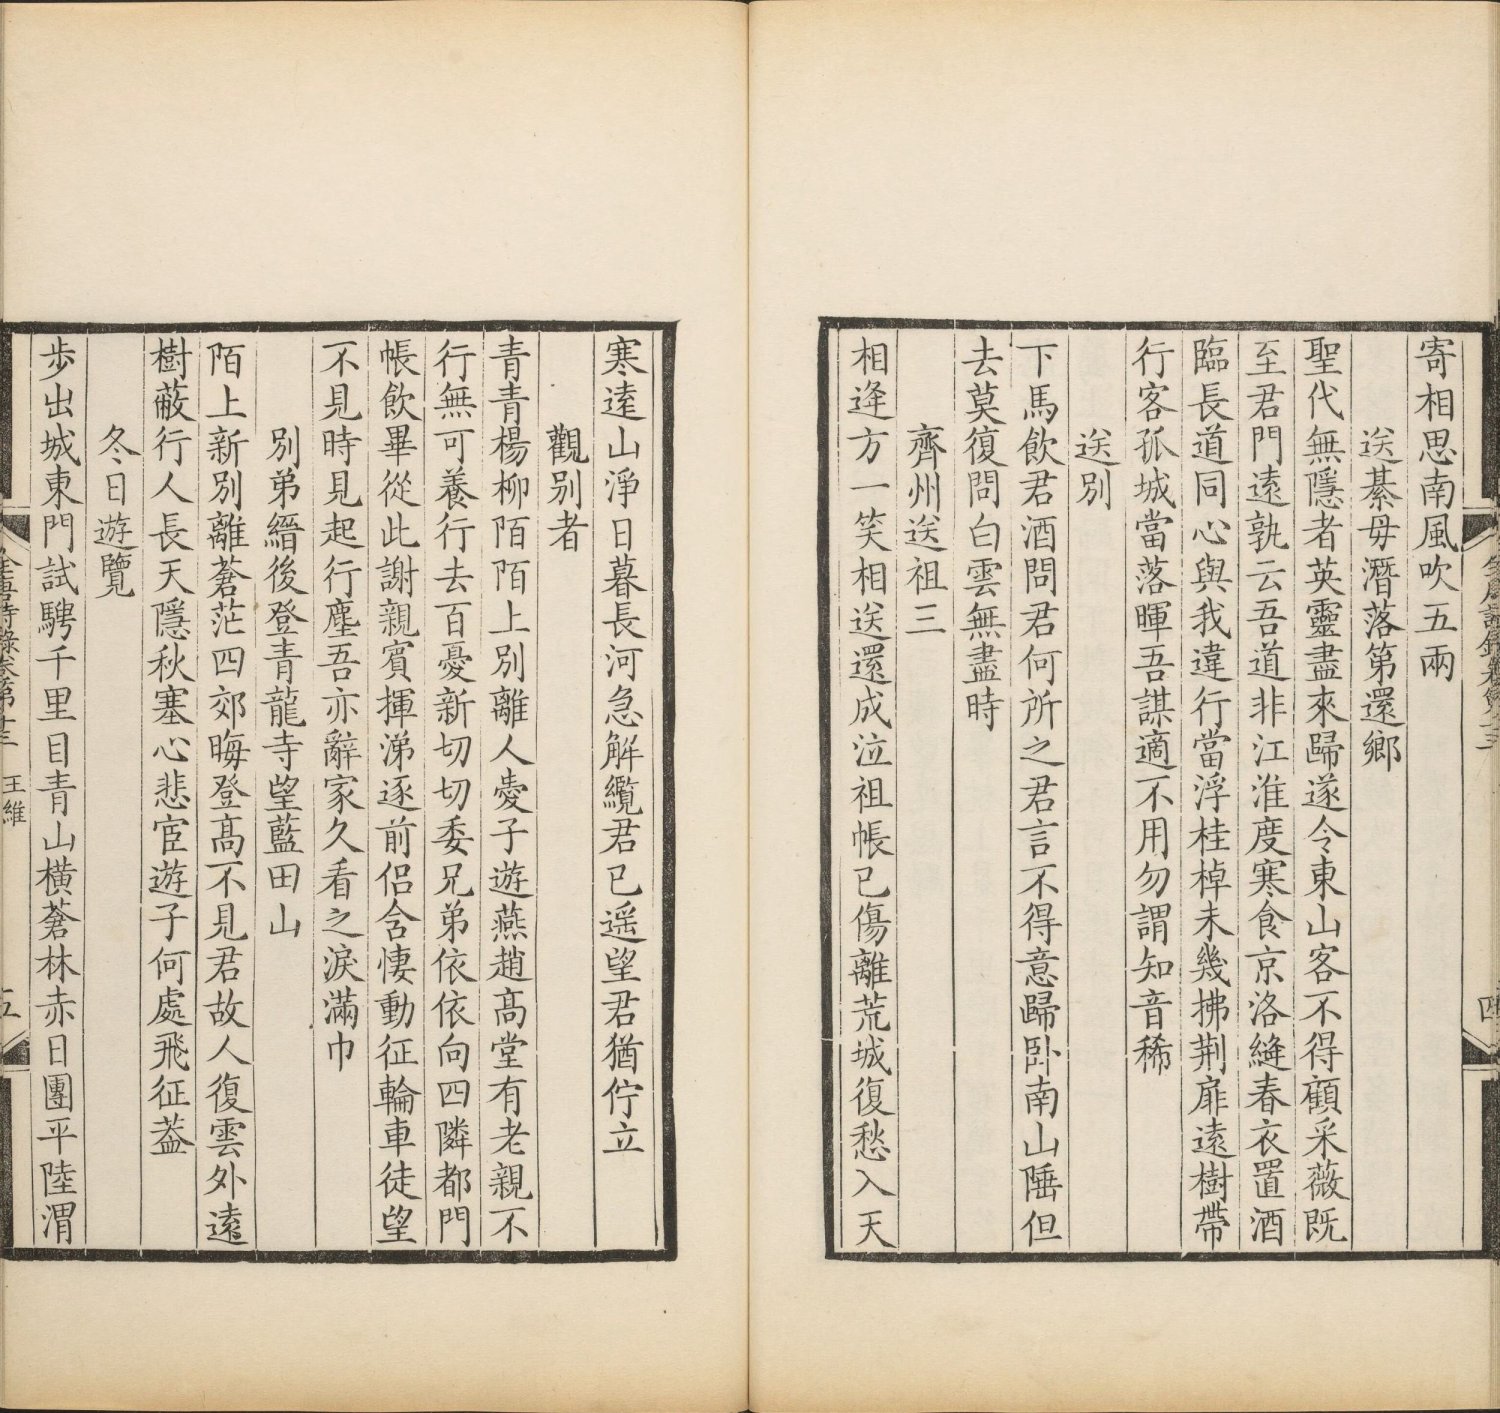 寄相思南風吹五兩
送綦毋潛落第還鄉
聖代無隱者英靈盡來歸遂令東山客不得顧采薇既
至君門遠孰云吾道非江淮度寒食京洛縫春衣置酒
臨長道同心與我違行當浮桂棹未幾拂荆扉遠樹帶
行客孤城當落暉吾謀適不用勿謂知音稀
送別
下馬飲君酒問君何所之君言不得意歸卧南山陲但
去莫復問白雲無盡時
齊州送祖三
相逢方一笑相送還成泣祖帳已傷離荒城復愁入天
寒遠山淨日暮長河急解纜君已遥望君猶佇立
觀別者
青青楊柳陌陌上別離人愛子遊燕趙髙堂有老親不
行無可養行去百憂新切切委兄弟依依向四隣都門
帳飲畢從此謝親賓揮涕逐前侣含悽動征輪車徒望
不見時見起行塵吾亦辭家久看之淚滿巾
別弟縉後登青龍寺望藍田山
陌上新別離蒼茫四郊晦登髙不見君故人復雲外遠
樹蔽行人長天隱秋塞心悲宦遊子何處飛征葢
冬日遊覽
歩出城東門試騁千里目青山橫蒼林赤日團平陸渭
王維